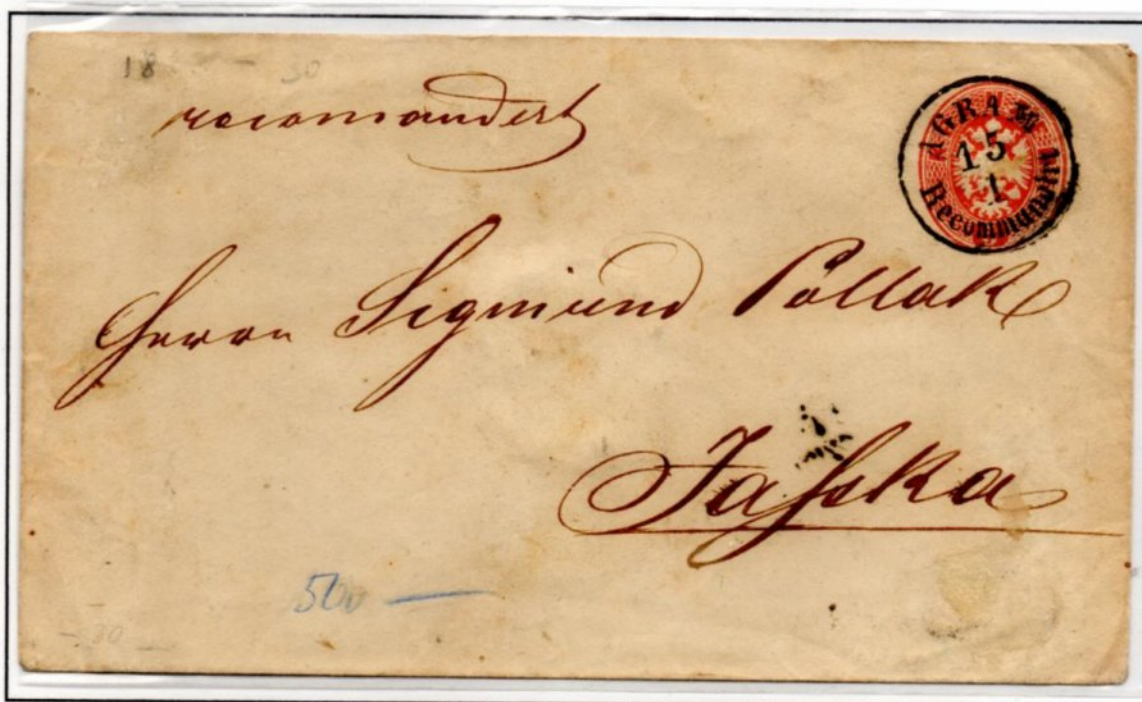 18 - 30
recomandert
AGRAM
15
1
Recommandirt
Herrn Sigmund Pollak
Jaßka
500 —
- 30 -